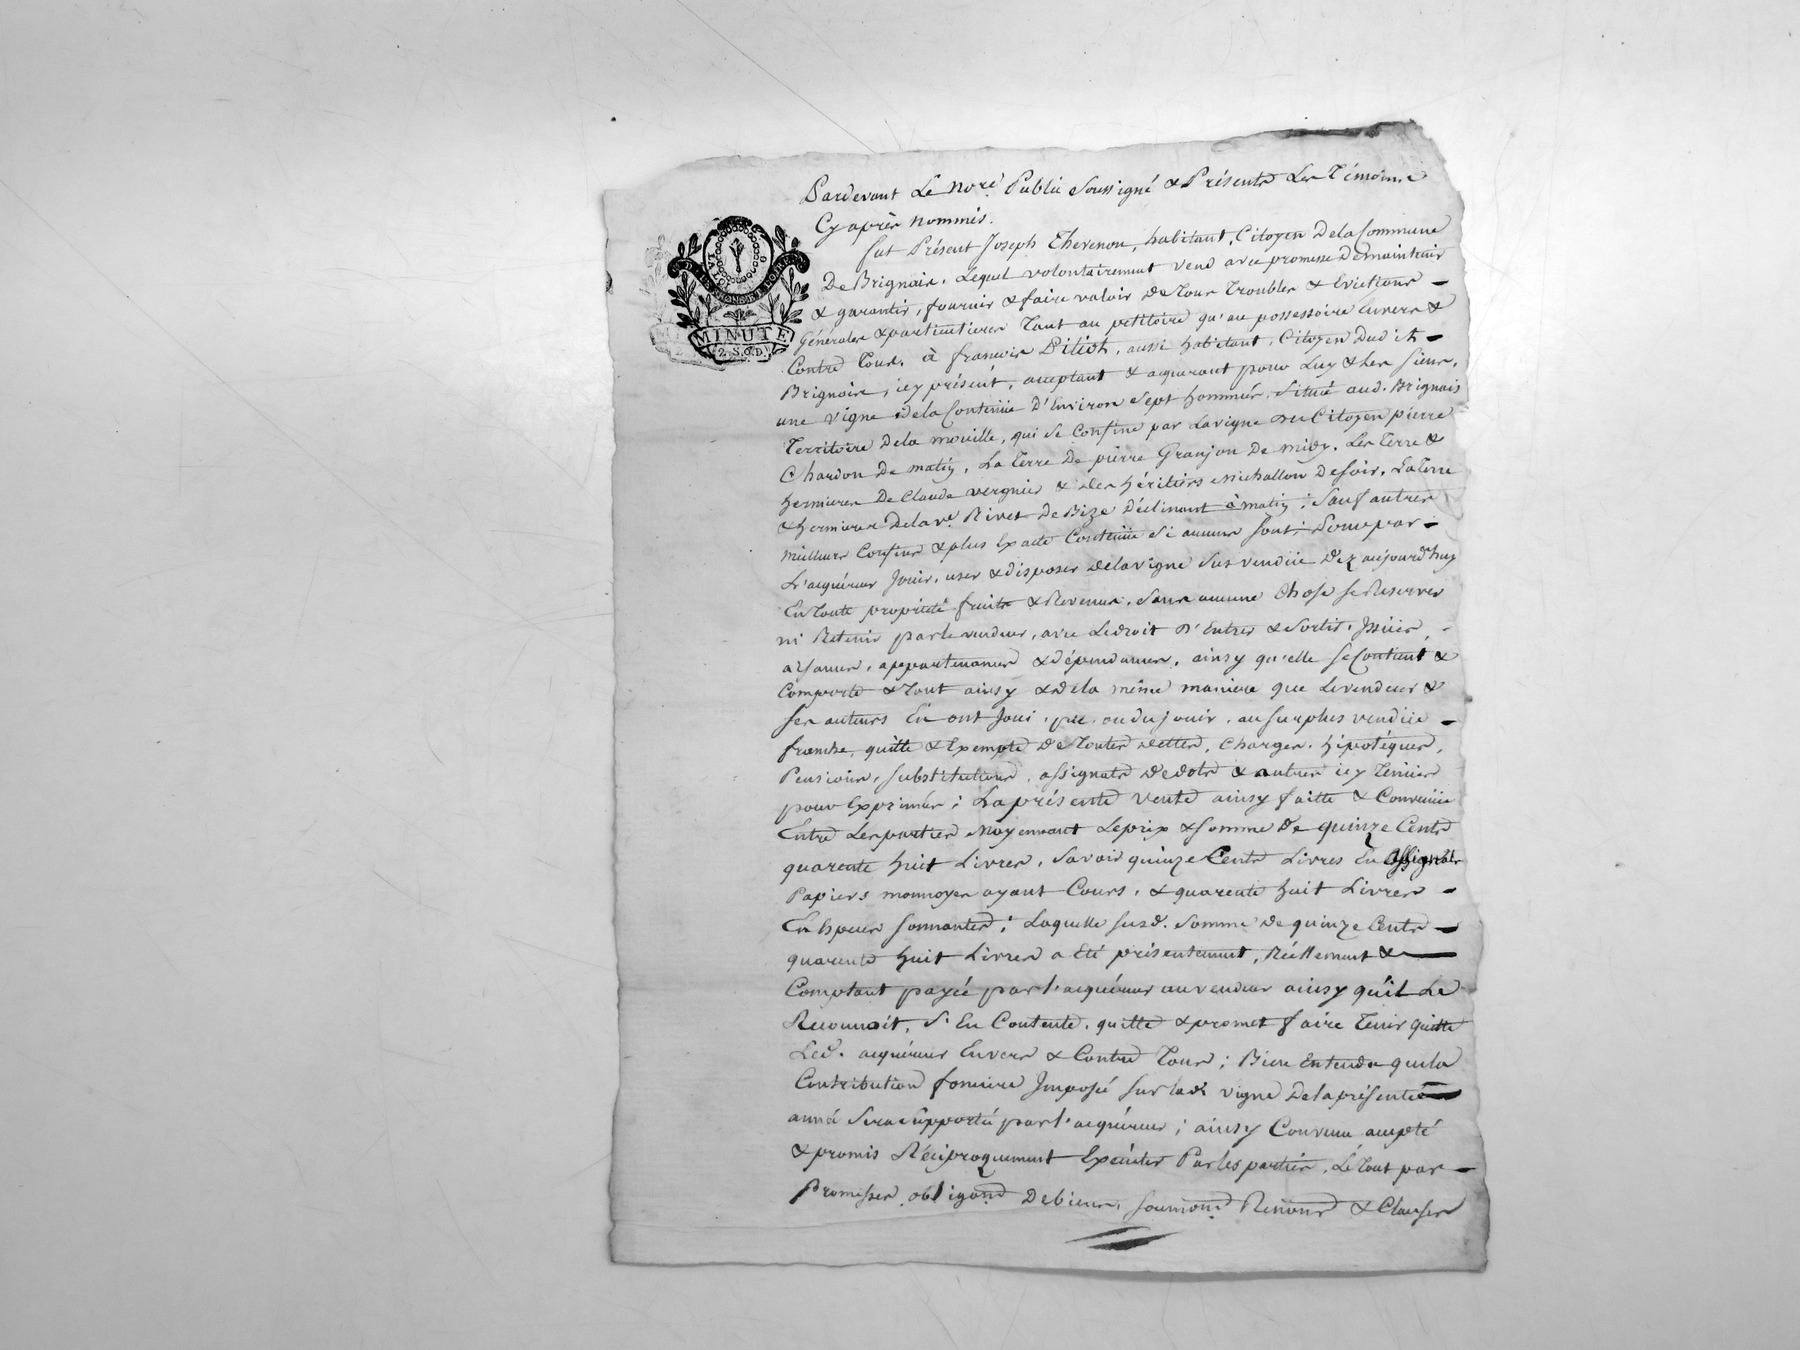 Pardevant Le Nore. Public Soussigné & Présents Les Témoins
Cy après Nommés.
fut Présent Joseph Thevenon, habitant, Citoyen De la Commune
De Brignais, Lequel volontairement vend avec promesse De maintenir
& garantir, fournir & faire valoir De Tous Troubles & Evictions
Générales & particulieres Tant au petitoire qu'au possessoire Envers &
Contre Tous, à françois Pitiot, aussi habitant, Citoyen Dud it
Brignais, icy présent, acceptant & aquerant pour Luy & Les Siens,
une Vigne De la Contenüe D'Environ Sept hommées, Située aud. Brignais
Territoire De la mouille, qui se Confine par La vigne Du Citoyen pierre
Chardon De matin, La Terre De pierre Granjon De midy, Les Terre &
hermieres De Claude vergnier & Des héritiers Michallon De soir, La Terre
& hermieres De la ve. Rivet De Bize Déclinant à matin; Sauf autres
meilleurs Confins & plus Exacte Contenüe Si aucuns sont; Pour par
L'aquéreur Jouir, user & disposer De la vigne Sus vendüe Dez aujourd'huy
En Toute propriété fruits & Revenus, Sans aucune Chose se Réserver
ni Retenir par le vendeur, avec Le droit D'Entrer & Sortir, Issües
aisances, appartenances & dépendances, ainsy qu'elle se Contient &
Comporte & Tout ainsy & De la même maniere que Le vendeur &
ses auteurs En ont Joui, pu, ou du jouir, au surplus vendüe
franche, quitte & Exempte De Toutes Dettes, Charges, hipotéques,
Pensions, substitutions, assignats De dots & autres icy Tenües
pour Exprimées; La présente Vente ainsy faitte & Convenüe
Entre Les parties Moyennant Le prix & somme De quinze Cents
quarente huit Livres, Savoir quinze Cents Livres En Assignats
Papiers monnoyes ayant Cours, & quarente huit Livres
En Espèces sonnantes; Laquelle susd. Somme De quinze Cents
quarente huit Livres a Eté présentement, Réellement &
Comptant payée par l'aquéreur au vendeur ainsy qu'il Le
Reconnoit, S'En Contente, quitte & promet faire Tenir Quitte
Led. aquéreur Envers & Contre Tous; Bien Entendu que la
Contribution fonciere Imposée sur lad. vigne De la présente
année Sera Supportée par l'aquéreur; ainsy Convenu accepté
& promis Réciproquement Exécuter Par les parties, Le Tout par
Promesses obligons De biens, soumons Renons & Clauses
MINUTE
2.S.6.D.